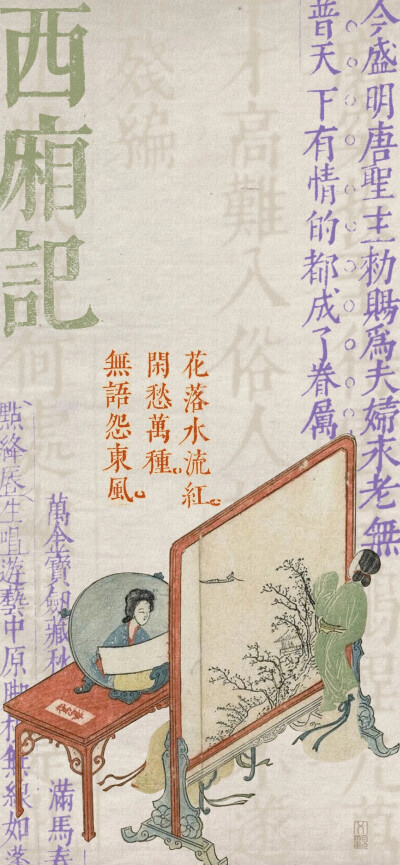 今盛明唐聖主勑賜爲夫婦永老無
普天下有情的都成了眷属
西廂記
才高難入俗人
殘編
何處
花落水流紅。
閑愁萬種。
無語怨東風。
萬金寶劍藏秋
滿馬春
點絳唇生唱遊藝中原脚根無線如蓬